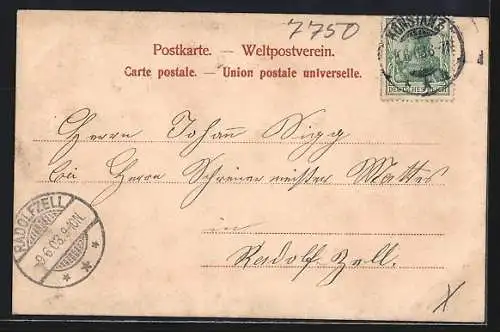 7750
Postkarte. — Weltpostverein.
Carte postale. — Union postale universelle.
KONSTANZ
DEUTSCHES REICH
Herrn Johann Sigg
bei Herrn Schreinermeister Mattes
in
Radolf-Zell.
RADOLFZELL
9.6.03. 9-10N.
X